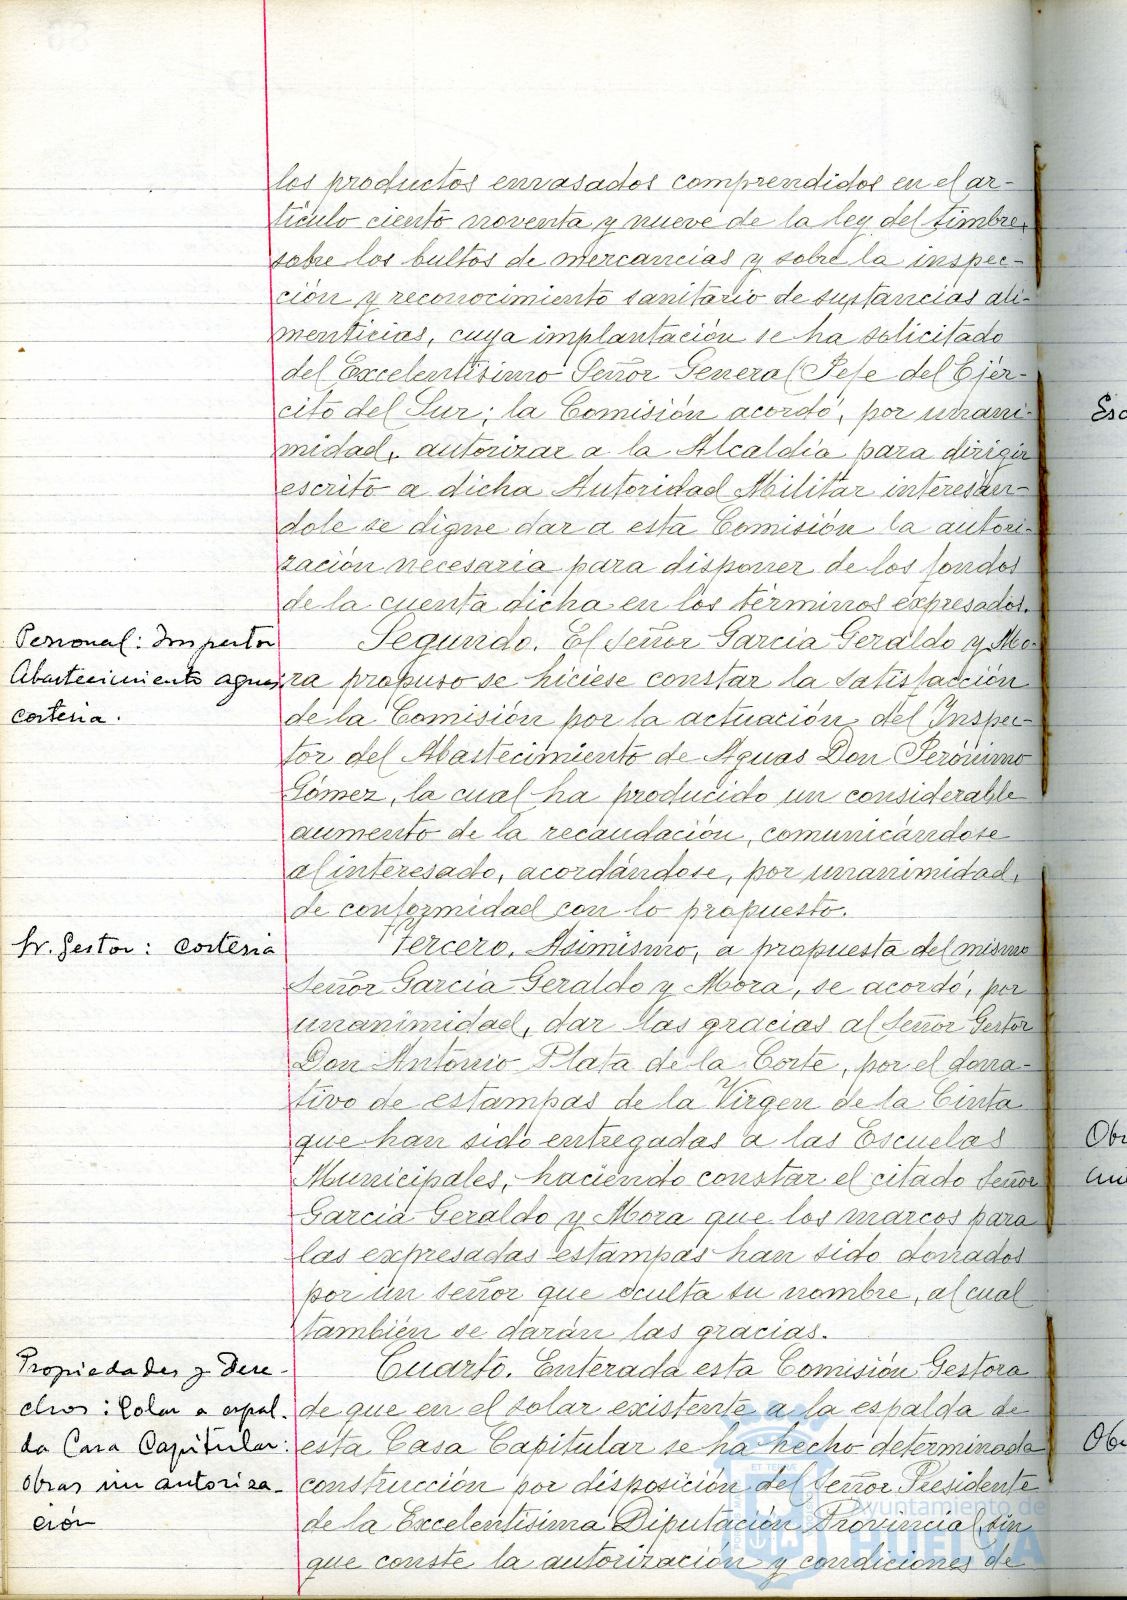 los productos envasados comprendidos en el ar-
tículo ciento noventa y nueve de la ley del timbre,
sobre los bultos de mercancías y sobre la inspec-
ción y reconocimiento sanitario de sustancias ali-
menticias, cuya implantación se ha solicitado
del Excelentísimo Señor General Jefe del Ejér-
cito del Sur; la Comisión acordó, por unani-
midad, autorizar a la Alcaldía para dirigir
escrito a dicha Autoridad Militar interesán-
dole se digne dar a esta Comisión la autori-
zación necesaria para disponer de los fondos
de la cuenta dicha en los términos expresados.
Personal: Inspector
Abastecimiento aguas
cortesia.
Segundo. El Señor García Geraldo y Mo-
ra propuso se hiciese constar la satisfacción
de la Comisión por la actuación del Inspec-
tor del Abastecimiento de Aguas Don Jerónimo
Gómez, la cual ha producido un considerable
aumento de la recaudación, comunicándose
al interesado, acordándose, por unanimidad,
de conformidad con lo propuesto.
Sr. Gestor: cortesia
Tercero. Asimismo, a propuesta del mismo
Señor García Geraldo y Mora, se acordó, por
unanimidad, dar las gracias al Señor Gestor
Don Antonio Plata de la Corte, por el dona-
tivo de estampas de la Virgen de la Cinta
que han sido entregadas a las Escuelas
Municipales, haciendo constar el citado Señor
García Geraldo y Mora que los marcos para
las expresadas estampas han sido donados
por un señor que oculta su nombre, al cual
también se darán las gracias.
Propiedades y Dere-
chos: Solar a espal-
da Casa Capitular:
obras sin autoriza-
ción
Cuarto. Enterada esta Comisión Gestora
de que en el solar existente a la espalda de
esta Casa Capitular se ha hecho determinada
construcción por disposición del Señor Presidente
de la Excelentísima Diputación Provincial, sin
que conste la autorización y condiciones de
Esc
Obr
Ob
Ayuntamiento de
HUELVA